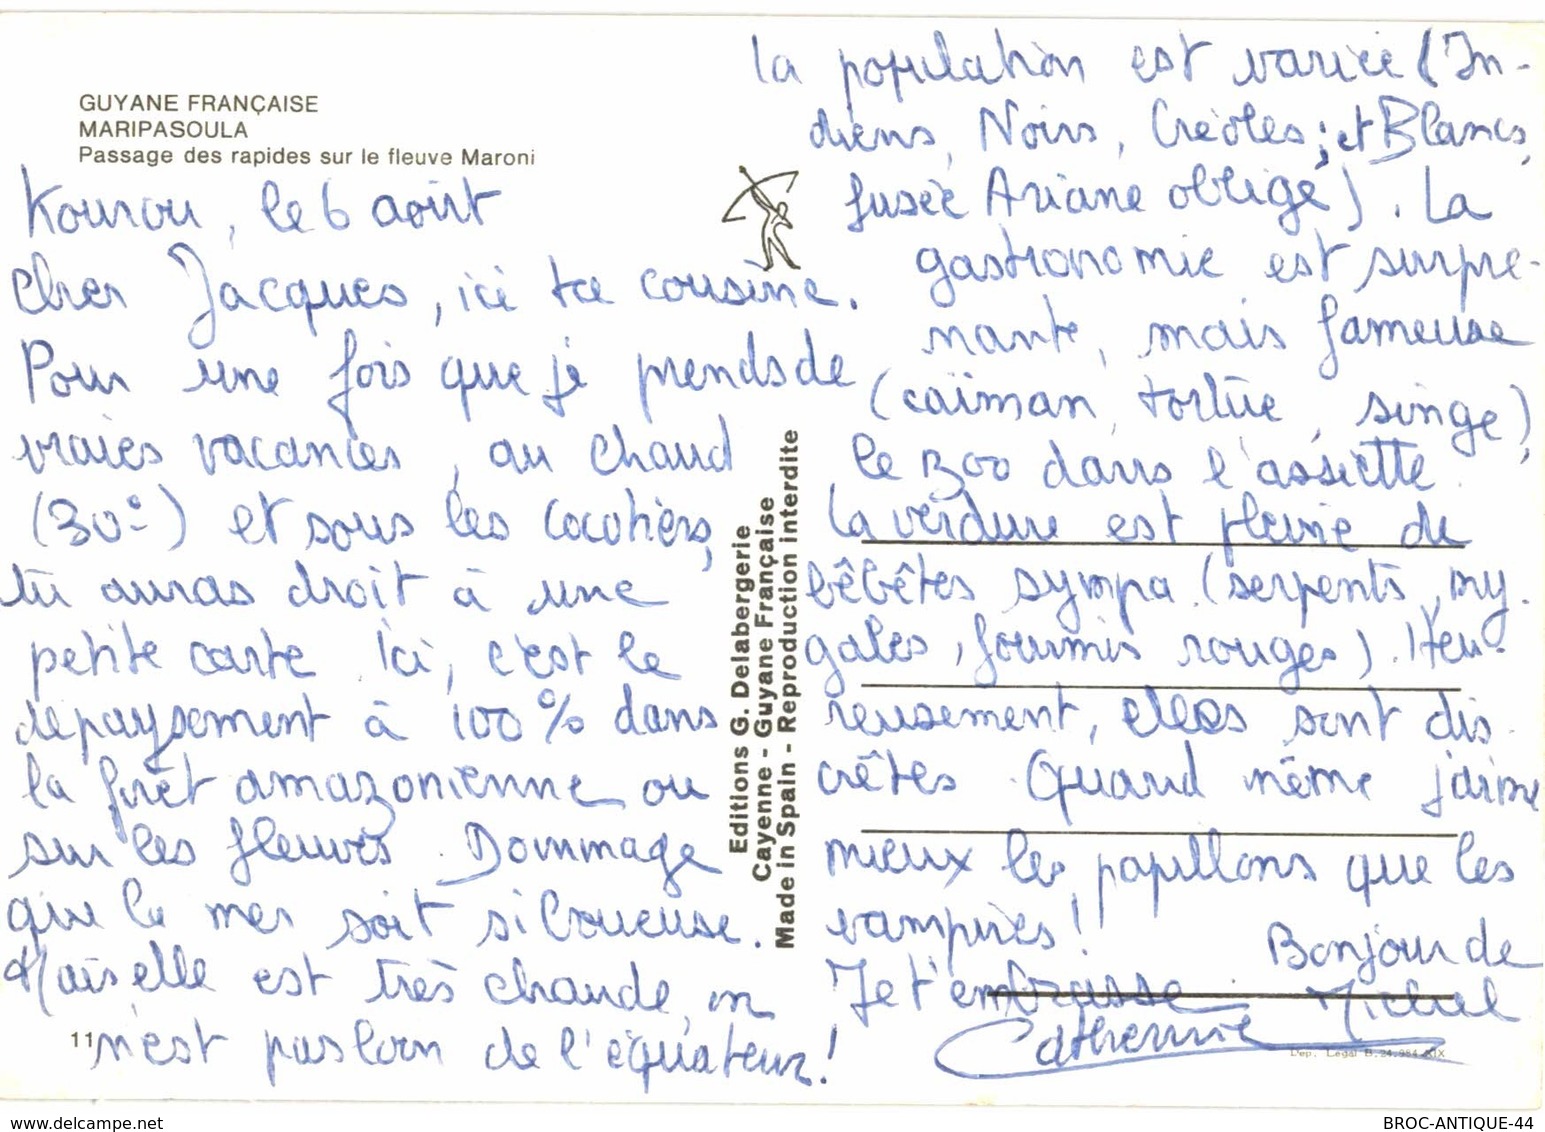 GUYANE FRANÇAISE
MARIPASOULA
Passage des rapides sur le fleuve Maroni
Kourou, le 6 août
Cher Jacques, ici ta cousine.
Pour une fois que je prends de
vraies vacances, au chaud
(30°) et sous les cocotiers,
tu auras droit à une
petite carte. Ici, c'est le
dépaysement à 100% dans
la forêt amazonienne ou
sur les fleuves. Dommage
que la mer soit si boueuse.
Mais elle est très chaude, on
n'est pas loin de l'équateur !
11
Editions G. Delabergerie
Cayenne - Guyane Française
Made in Spain - Reproduction interdite
la population est variée (In-
diens, Noirs, Créoles, et Blancs,
fusée Ariane oblige). La
gastronomie est surpre-
nante, mais fameuse
(caïman, tortue, singe),
le zoo dans l'assiette.
La verdure est pleine de
bêbêtes sympa (serpents, my-
gales, fourmis rouges). Heu-
reusement, elles sont dis-
crêtes. Quand même j'aime
mieux les papillons que les
vampires !
Bonjour de
Michel
Je t'embrasse
Catherine
Dep. Légal B. 24.984-XIX
BROC-ANTIQUE-44